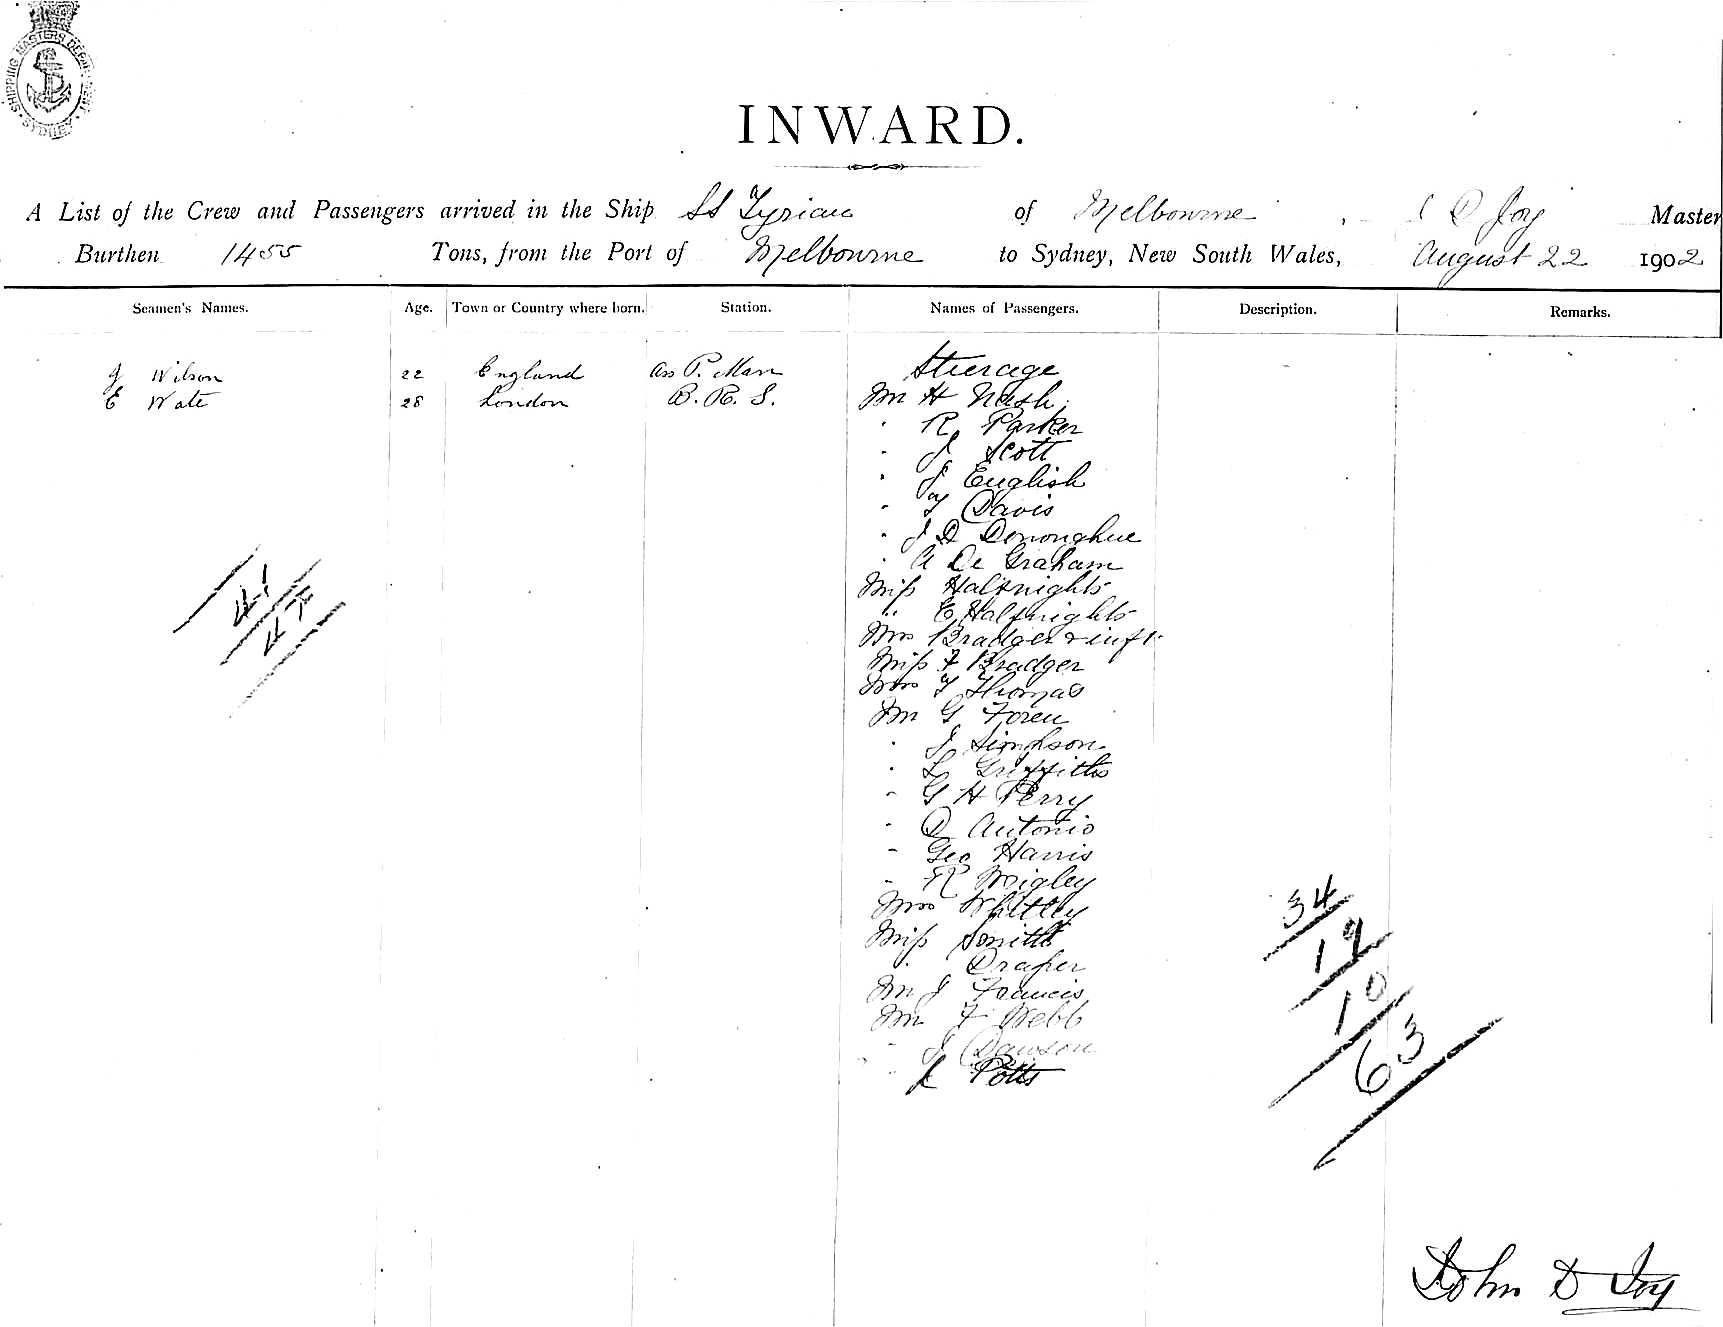 SHIPPING MASTERS DEPARTMENT
SYDNEY
INWARD.
A List of the Crew and Passengers arrived in the Ship SS Tyrian of Melbourne, J D Joy Master
Burthen 1455 Tons, from the Port of Melbourne to Sydney, New South Wales, August 22 1902
Seamen's Names. Age. Town or Country where born. Station. Names of Passengers. Description. Remarks.
J Wilson 22 England Ass P. Man
E Wate 28 London B. R. S.
Steerage
Mr H Nash
" R Parker
" J Scott
" J English
" T Davis
" J D Donoghue
" A De Graham
Miss Halfnights
" E Halfnights
Mrs Bradger & inft
Miss F Bradger
Mrs T Thomas
Mr G Foreu
" J Simpson
" L Griffiths
" G H Perry
" D Antonio
" Geo Harris
" R Wrigley
Mrs Whitley
Miss Smith
" Draper
Mr J Francis
Mr F Webb
" J Dawson
" K Potts
41
47
34
19
10
63
John D Joy